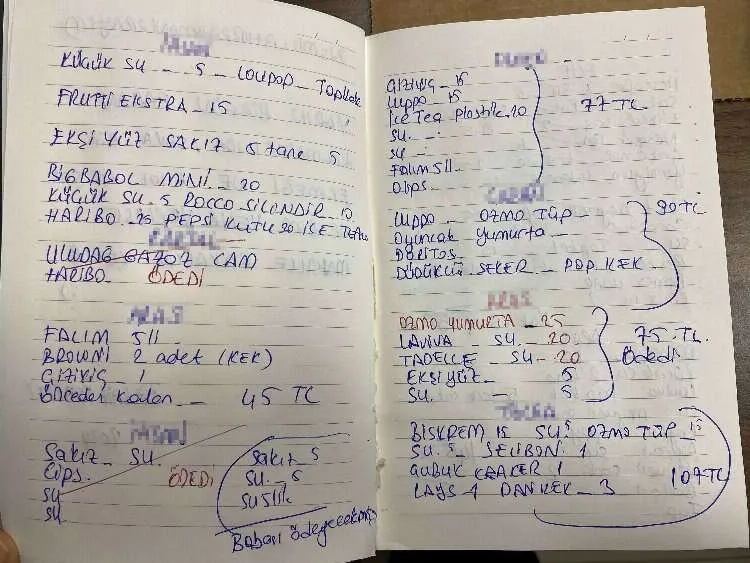 KÜÇÜK SU _ _ 5 _ LOLİPOP _ Topkek
FRUTTİ EKSTRA 15
EKŞİ YÜZ SAKIZ 5 tane 5
BİGBABOL MİNİ - 20
KÜÇÜK SU. 5 ROCCO SİLİNDİR _ 10
HARİBO _ 25 PEPSİ KUTU 20 ICE TEA
ULUDAĞ GAZOZ CAM
HARİBO ÖDEDİ
FALIM 5Lİ
BROWNİ 2 adet (KEK)
GIZIKIÇ _ 1
Önceden kalan _ 45 TC
Sakız _ SU.
Cips.
SU
SU
ÖDEDİ
Sakız _ 5
SU. _ 5
SUSLİK
Babası ödeyecekmiş
GIZIKIÇ _ 15
Luppo _ 15
İce Tea Plastik. 20
SU. _ :
SU _ :
FALIM 5Lİ _
Cips.
77 TL
LUPPO _ OZMO TÜP _
Oyuncak yumurta _
DORİTOS
DÜDÜKLÜ ŞEKER _ POP KEK
90 TL
OZMO YUMURTA _ 25
LAVİVA _ SU. _ 20
TADELLE _ SU _ 20
EKŞİ YÜZ _ 5
SU. _ 5
75 TL.
Ödedi
BİSKREM 15 SU. 5 OZMO TÜP _ 15
SU. 5 _ SELİBON. 1
ÇUBUK KRAKER 1
LAYS 1 DANKEK _ 3
107 TL